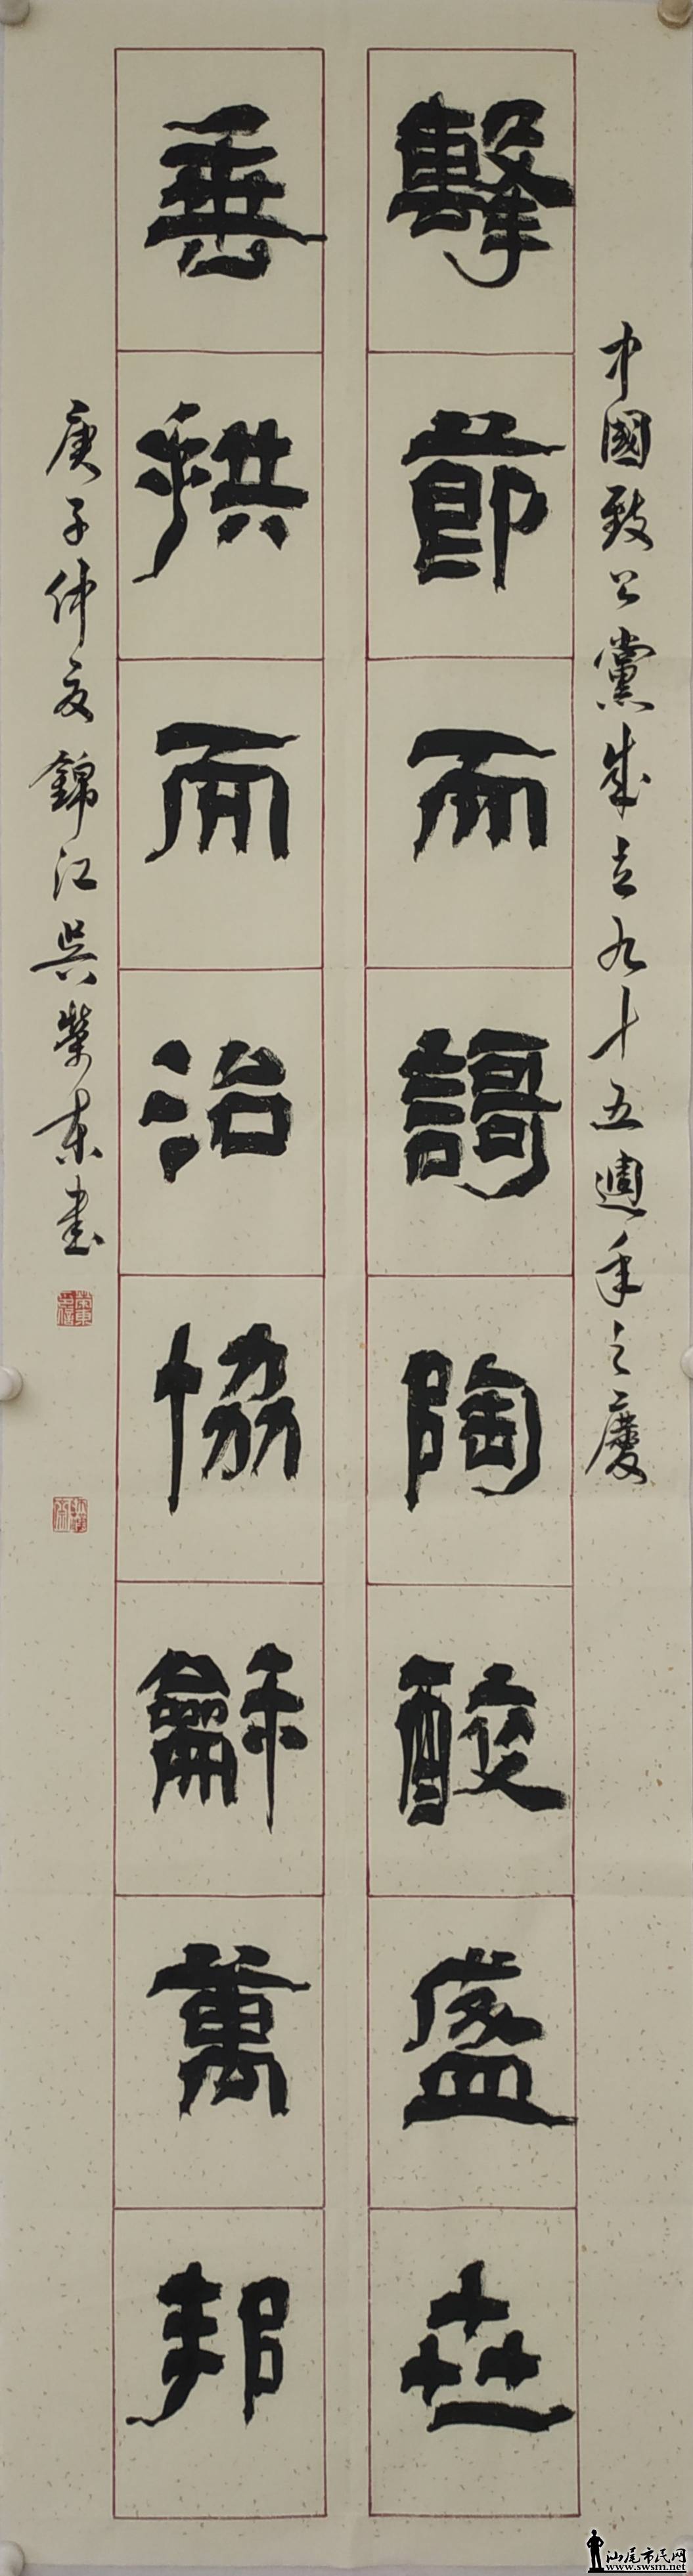 中國致公黨成立九十五週年之慶
擊節而謌陶酸盛世
垂拱而治協龢萬邦
庚子仲夏錦江吳榮東書
汕尾市民网
www.swsm.net